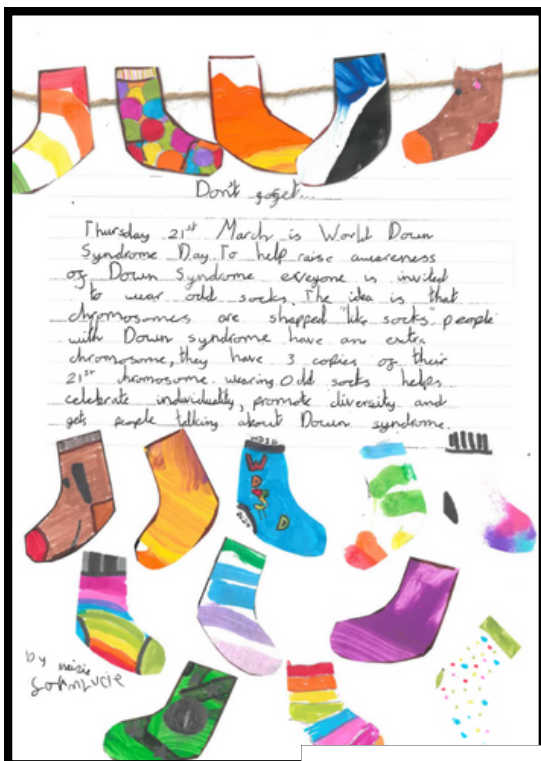 Don't foget...
Thursday 21st March is World Down
Syndrome Day. To help raise awareness
of Down Syndrome everyone is invited
to wear odd socks. The idea is that
chromosomes are shapped "like socks" people
with Down syndrome have an extra
chromosome, they have 3 copies of their
21st chromosome. wearing Odd socks helps
celebrate individuality, promote diversity and
gets people talking about Down syndrome.
WDSD
WDSD
2024
by maisie